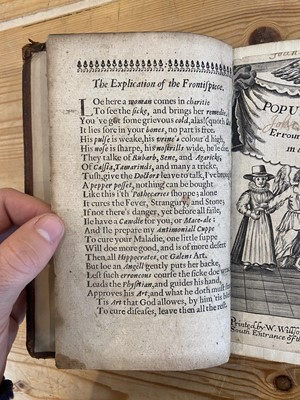 The Explication of the Frontispiece.
LOe here a woman comes in charitie
To see the sicke, and brings her remedie.
You've got some grievous cold, alas! (quoth
It lies sore in your bones, no part is free.
His pulse is weake, his vrine's colour'd high,
His nose is sharpe, his nostrills wide, he'l die.
They talke of Rubarb, Sene, and Agaricke,
Of Cassia, Tamarinds, and many a tricke,
Tush, give the Doctors leave to talk, I've brought
A pepper posset, nothing can be bought
Like this i'th 'Pothecaries shoppe; alone
It cures the Fever, Strangury, and Stone;
If not there's danger, yet before all faile,
Ile have a Caudle for you, or Mace-ale:
And Ile prepare my Antimoniall Cuppe
To cure your Maladie, one little suppe
Will doe more good, and is of more desert
Then all Hippocrates, or Galens Art.
But loe an Angell gently puts her backe,
Lest such erroneous course the sicke doe wrack,
Leads the Physitian, and guides his hand,
Approves his Art, and what he doth must stand.
Tis Art that God allowes, by him 'tis blest
To cure diseases, leave then all the rest.
POPU
Errou
in
Printed by W. Wilso
South Entrance of